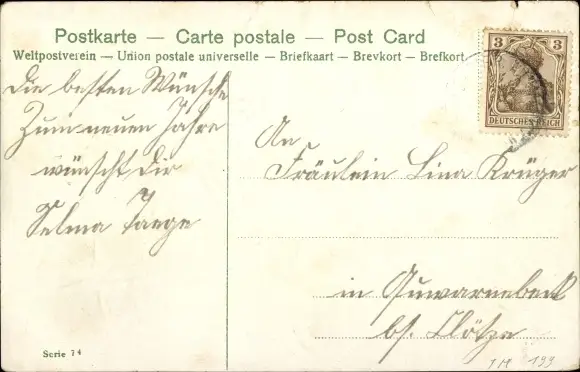 Postkarte — Carte postale — Post Card
Weltpostverein — Union postale universelle — Briefkaart — Brevkort — Brefkort
3 3
DEUTSCHES REICH
Die besten Wünsche
Zum neuen Jahre
wünscht dir
Selma Taege
An
Fräulein Lina Krüger
in
bs. Clötze
Serie 74
1M 199